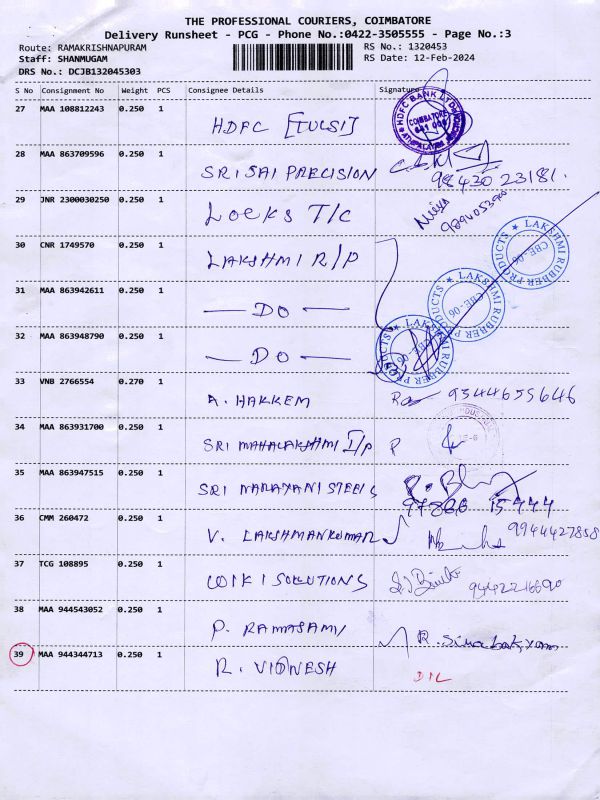 THE PROFESSIONAL COURIERS, COIMBATORE
Delivery Runsheet - PCG - Phone No.:0422-3505555 - Page No.:3
Route: RAMAKRISHNAPURAM
RS No.: 1320453
Staff: SHANMUGAM
RS Date: 12-Feb-2024
DRS No.: DCJB132045303
S No Consignment No Weight PCS Consignee Details Signature
27 MAA 108812243 0.250 1 HDFC [TULSI]
HDFC BANK LTD
COIMBATORE
641 006
28 MAA 863709596 0.250 1 SRI SAI PRECISION
98430 23181.
29 JNR 2300030250 0.250 1 LOCKS T/C
30 CNR 1749570 0.250 1 LAKSHMI R/P
LAKSHMI RUBBER PRODUCTS
CBE-06
31 MAA 863942611 0.250 1 — DO —
LAKSHMI RUBBER PRODUCTS
CBE-06
32 MAA 863948790 0.250 1 — DO —
LAKSHMI RUBBER PRODUCTS
33 VNB 2766554 0.270 1 A. HAKKEM 9344655646
34 MAA 863931700 0.250 1 SRI MAHALAKSHMI I/P
35 MAA 863947515 0.250 1 SRI NARAYANI STEELS
15444
36 CMM 260472 0.250 1 V. LAKSHMANKUMAR 9944427858
37 TCG 108895 0.250 1 SOLUTIONS
38 MAA 944543052 0.250 1 P. RAMASAMY
39 MAA 944344713 0.250 1 R. VIGNESH DIL